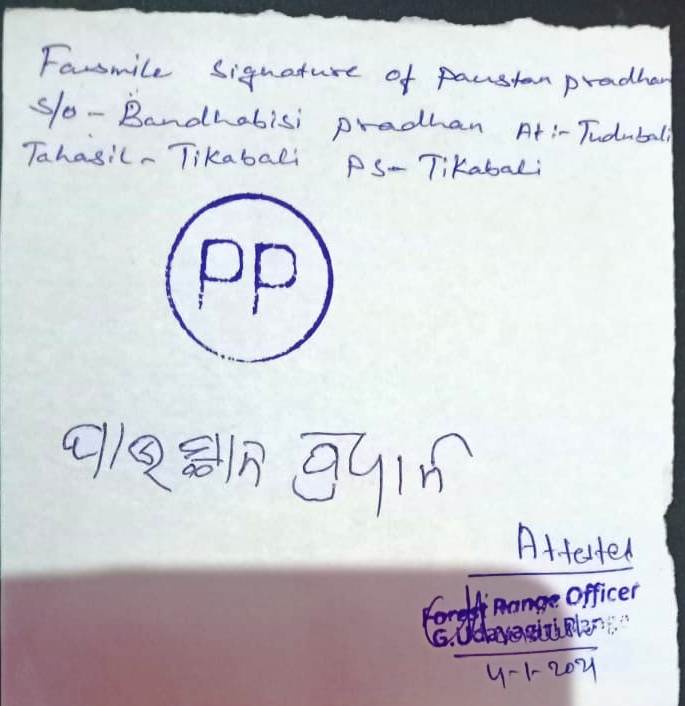 Facsmile signature of Paustan pradhan
S/o - Bandhabisi pradhan At :- Tudubali
Tahasil - Tikabali PS - Tikabali
PP
ପାଉସ୍ତାନ ପ୍ରଧାନ
Attested
Forest Range Officer
G.Udayagiri Range
4-1-2021